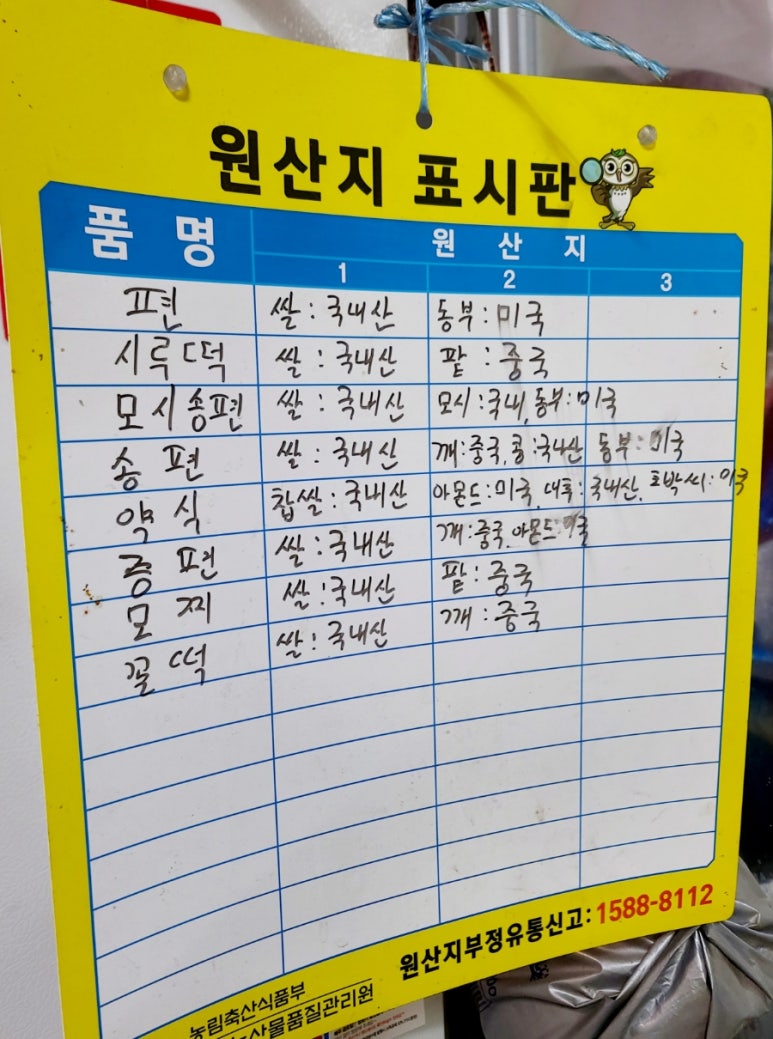 원산지 표시판
품명 원산지
1 2 3
편 쌀:국내산 동부:미국
시루떡 쌀:국내산 팥:중국
모시송편 쌀:국내산 모시:국내,동부:미국
송편 쌀:국내산 깨:중국,콩:국내산 동부:미국
약식 찹쌀:국내산 아몬드:미국, 대추:국내산, 호박씨:미국
증편 쌀:국내산 깨:중국,아몬드:미국
모찌 쌀:국내산 팥:중국
꿀떡 쌀:국내산 깨:중국
원산지부정유통신고:1588-8112
농림축산식품부
산물품질관리원